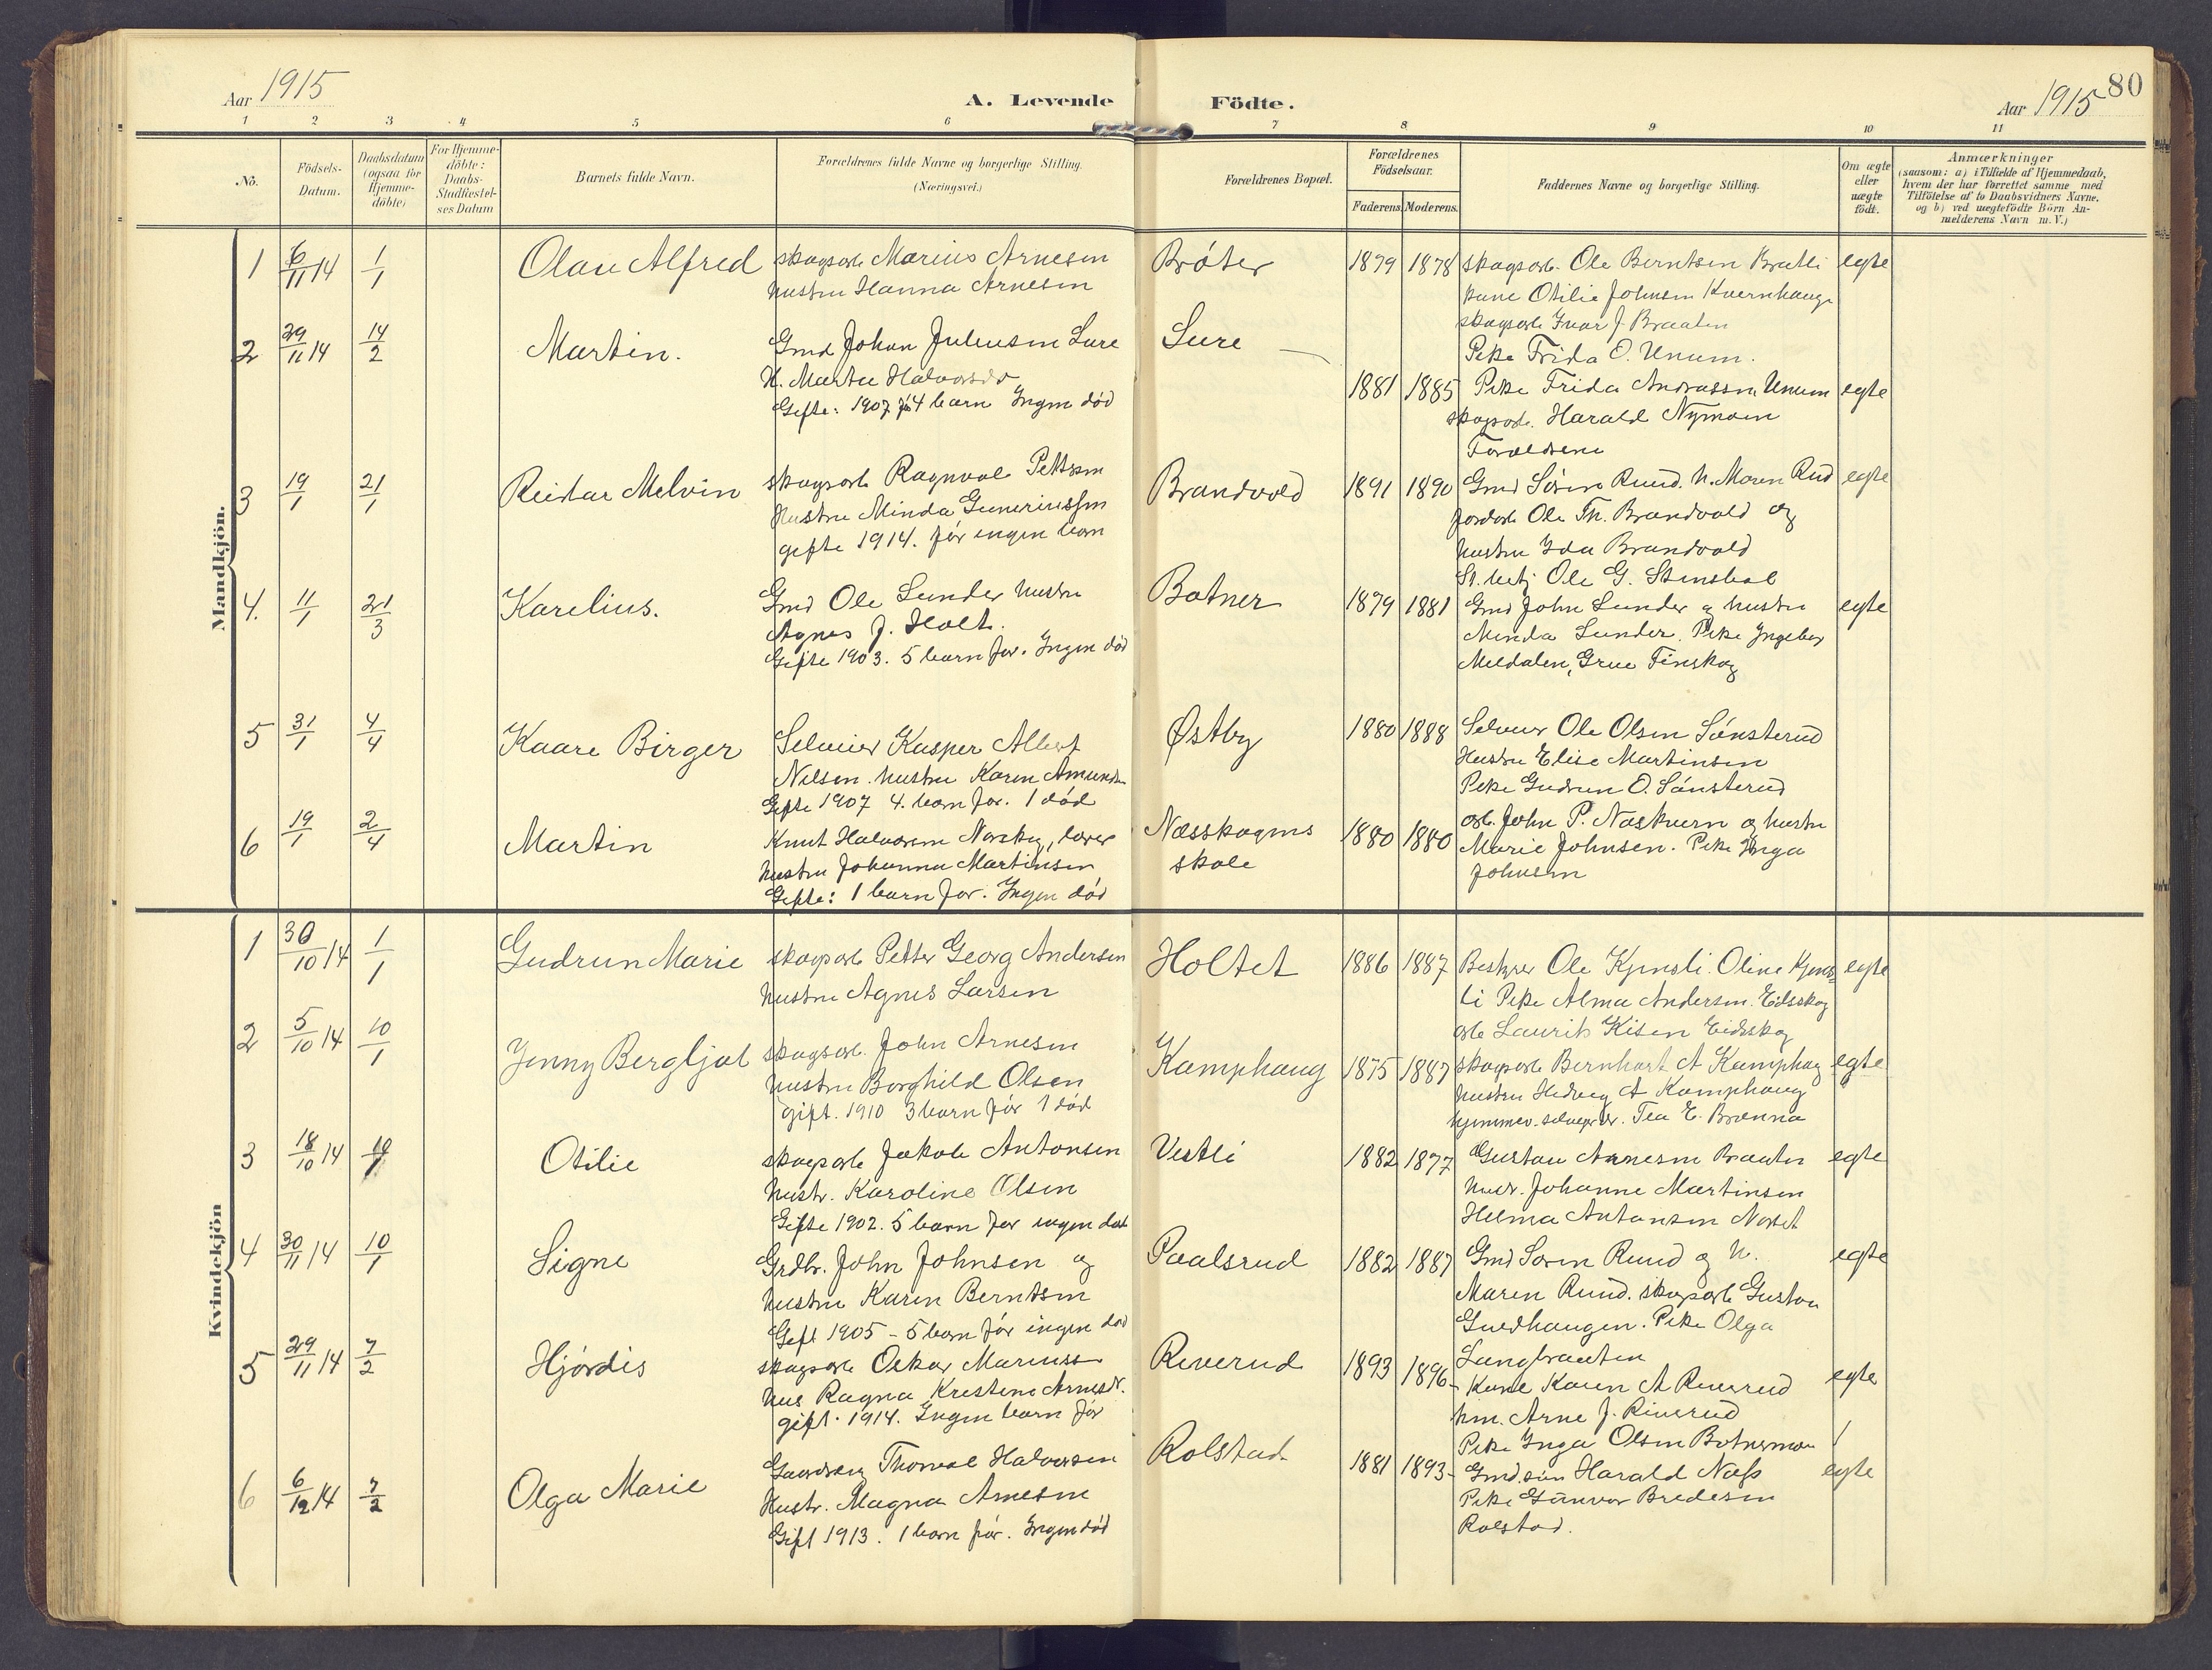 Aar 1915
A. Levende Födte.
Aar 1915
80
1 2 3 4 5 6 7 8 9 10 11
No.
Födsels-Datum.
Daabsdatum (ogsaa for Hjemme-döbte)
For Hjemme-döbte: Daabs-Stadfæstel-ses Datum
Barnets fulde Navn.
Forældrenes fulde Navne og borgerlige Stilling. (Næringsvei.)
Forældrenes Bopæl.
Forældrenes Födselsaar.
Faderens Moderens.
Faddernes Navne og borgerlige Stilling.
Om ægte eller uægte födt.
Anmærkninger
(saasom: a) i Tilfælde af Hjemmedaab,
hvem der har forrettet samme med
Tilföielse af to Daabsvidners Navne,
og b) ved uægtefödte Börn An-
melderens Navn m. V.)
Mandkjön.
1 6/11 14 1/1 Olav Alfred
skogsarb Marius Arnesen
hustru Hanna Arnesen
Bråter 1879 1878
skogsarb. Ole Berntsen Bratli egte
kone Otilie Johnsen Kvernhaug
skogsarb Ivar J. Braaten
Pike Frida O. Unum.
2 29/11 14 14/2 Martin.
Gmd Johan Juliussen Lure
H. Marte Halvorsdr
Gifte: 1907 før 4 barn Ingen død
Lure 1881 1885
Pike Frida Andreassen Unum egte
skogsarb. Harald Nymoen
Forældrene
3 19/1 21/1 Reidar Melvin
skogsarb Ragnval Pettersen
Hustru Minda Gunerius
gifte 1914. før ingen barn
Brandvold 1891 1890
Gmd Søren Ruud. h. Maren Rud egte
jordarb Ole Th. Brandvold og
hustru Ida Brandvold
Ole G.
4. 11/1 21/3 Karelius.
Gmd Ole Lunder hustru
Agnes J. Holt.
Gifte 1903. 5 barn før. Ingen død
Botner 1879 1881
Gmd John Lunder og hustru egte
Minda Lunder. Pike Ingeborg
Meldalen, Grue Finskog
5 31/1 4/4 Kaare Birger
Selveier Kasper Albert
Nilsen. hustru Karen Amundsen
Gifte 1907 4. barn før. 1 død
Østby 1880 1888
Selveier Ole Olsen Sønsterud
Hustru Elise Martinsen
Pike Gudrun O. Sønsterud
6 19/1 2/4 Martin
Knut Halvorsen Norsky, lærer
hustru Johanna Martinsen
Gifte: 1 barn før. Ingen død
Næsskogens
skole
1880 1880
arb. John P. Næskvern og hustru
Marie Johnsen. Pike Inga
Johnsen
Kvindekjön
1 30/10 14 1/1 Gudrun Marie
skogsarb Petter Georg Andersen
hustru Agnes Larsen
Holtet 1886 1887
Bestyrer Ole Kjensli. Oline Kjens egte
li Pike Alma Andersen. Eidsskog
arb Laurits Kisen Eidsskog
2 5/10 14 10/1 Jenny Bergljot
skogsarb. John Arnesen
hustru Borghild Olsen
gift. 1910 3 barn før 1 død
Kamphaug 1875 1887
skogsarb Bernhart A Kamphaug egte
hustru Hedvig A Kamphaug
hjemmev. Tea E. Brænna
3 18/10 14 10/1 Otilie
skogsarb Jakob Antonsen
hustr. Karoline Olsen
Gifte 1902. 5 barn før ingen død
Vestli 1882 1877
Gustav Arnesen Braaten egte
hustr. Johanne Martinsen
Helma Antonsen Noret
4 30/11 14 10/1 Signe
Grdbr. John Johnsen og
hustru Karen Berntsen
Gift 1905 - 5 barn før ingen død
Paalsrud 1882 1887
Gmd Soren Ruud og h. egte
Maren Ruud. skogsarb Gustav
Guedhaugen. Pike Olga
Langbraaten
5 29/11 14 7/2 Hjørdis
skogsarb Oskar Mariuss
hus Ragna Kristine Arnesdr.
gift. 1914. Ingen barn før
Riverud 1893 1896
Kone Karen A Riverud egte
hm. Arne J. Riverud
Pike Inga Olsen Botnermoen
6 6/12 14 7/2 Olga Marie
Thorval Halvorsen
Hustr. Magna Arnesen
Gift 1913. 1 barn før. Ingen død
Rolstad 1881 1893
Gmd.søn Harald Næss egte
Pike Gunvor Bredesen
Rolstad.